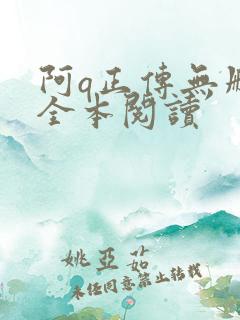 阿q正傳無刪
全本閱讀
姚亞茹
未經同意禁止轉載